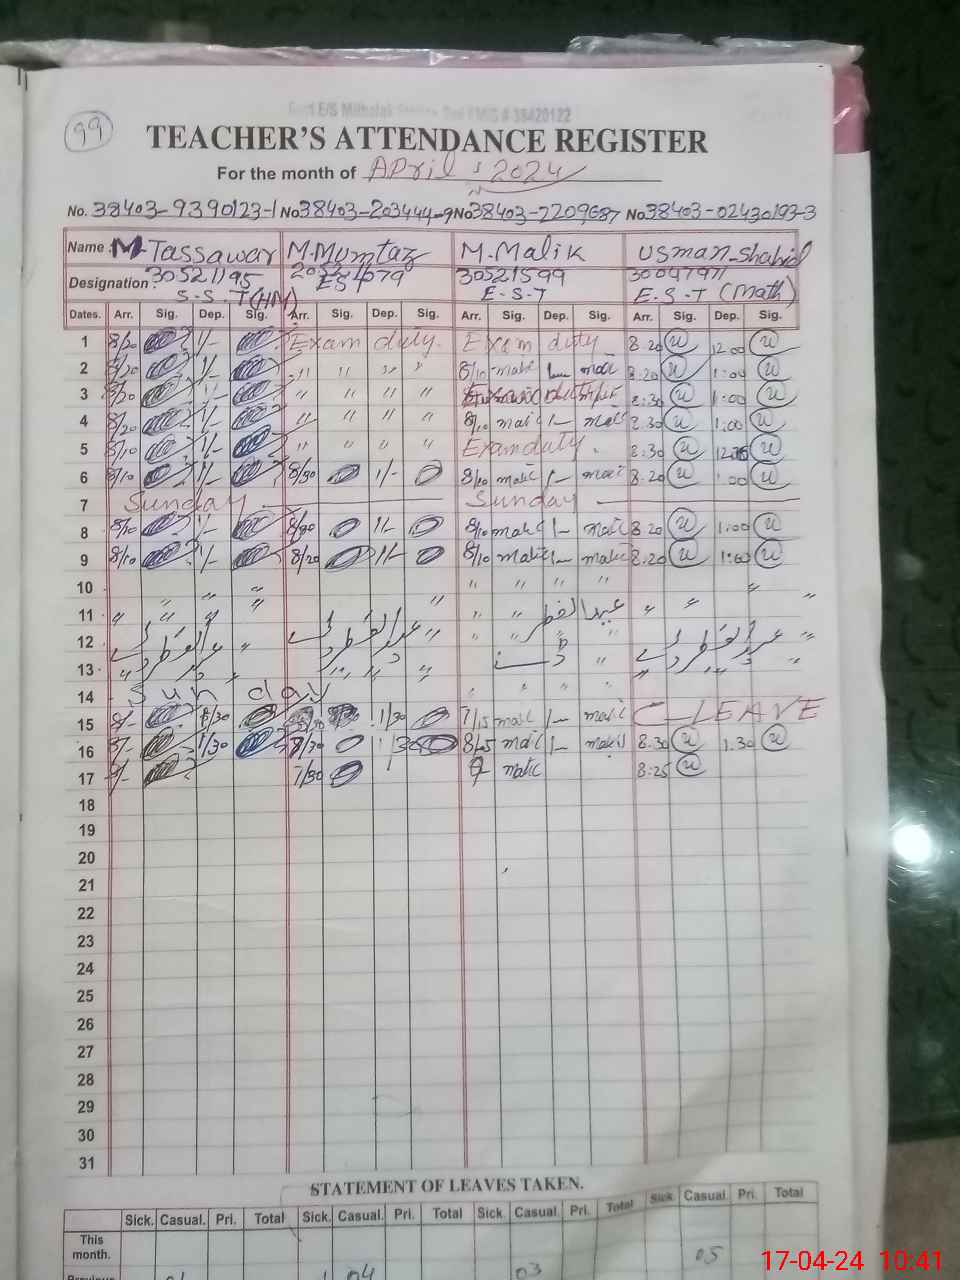 99
TEACHER'S ATTENDANCE REGISTER
For the month of April 2024
No. 38403-9390123-1 No 38403-203444-9 No 38403-2209687 No 38403-02430193-3
Name: M. Tassawar M. Mumtaz M. Malik Usman Shahid
30521195 30521599 30047971
Designation: S.S.T (HM) EST E.S.T E.S.T (Math)
Dates. Arr. Sig. Dep. Sig. Arr. Sig. Dep. Sig. Arr. Sig. Dep. Sig. Arr. Sig. Dep. Sig.
1 8/20 1/- Exam duty. Exam duty 8.20 12.00
2 8/20 1/- " " " " 8/10 malic 1- malic 8.20 1:00
3 8/20 1/- " " " " 8:30 1:00
4 8/20 1/- " " " " 8/10 malic 1- malic 8.30 1:00
5 8/10 1/- " " " " Exam duty. 8:30
6 8/10 1/- 8/30 1/- 8/10 malic 1- malic 8.20 1:00
7 Sunday Sunday
8 8/10 1/- 8/30 1/- 8/10 malic 1- malic 8.20 1:00
9 8/10 1/- 8/20 1/- 8/10 malic 1- malic 8:20 1:00
10 " " " " " " " "
11 " " " " " " عيد الفطر " " "
12 عيد الفطر " عيد الفطر " " " " " عيد الفطر "
13 " " " " " " " "
14 Sunday " " " "
15 8/- 8/30 1/30 7/15 malic 1- malic LEAVE
16 8/- 1/30 8/30 1/30 8/25 malic 1- malic 8.30 1.30
17 8/- 7/30 malic 8:25
18
19
20
21
22
23
24
25
26
27
28
29
30
31
STATEMENT OF LEAVES TAKEN.
Sick. Casual. Pri. Total Sick. Casual. Pri. Total Sick. Casual. Pri. Total Sick Casual. Pri. Total
This month. 05
Previous 04 03
17-04-24 10:41